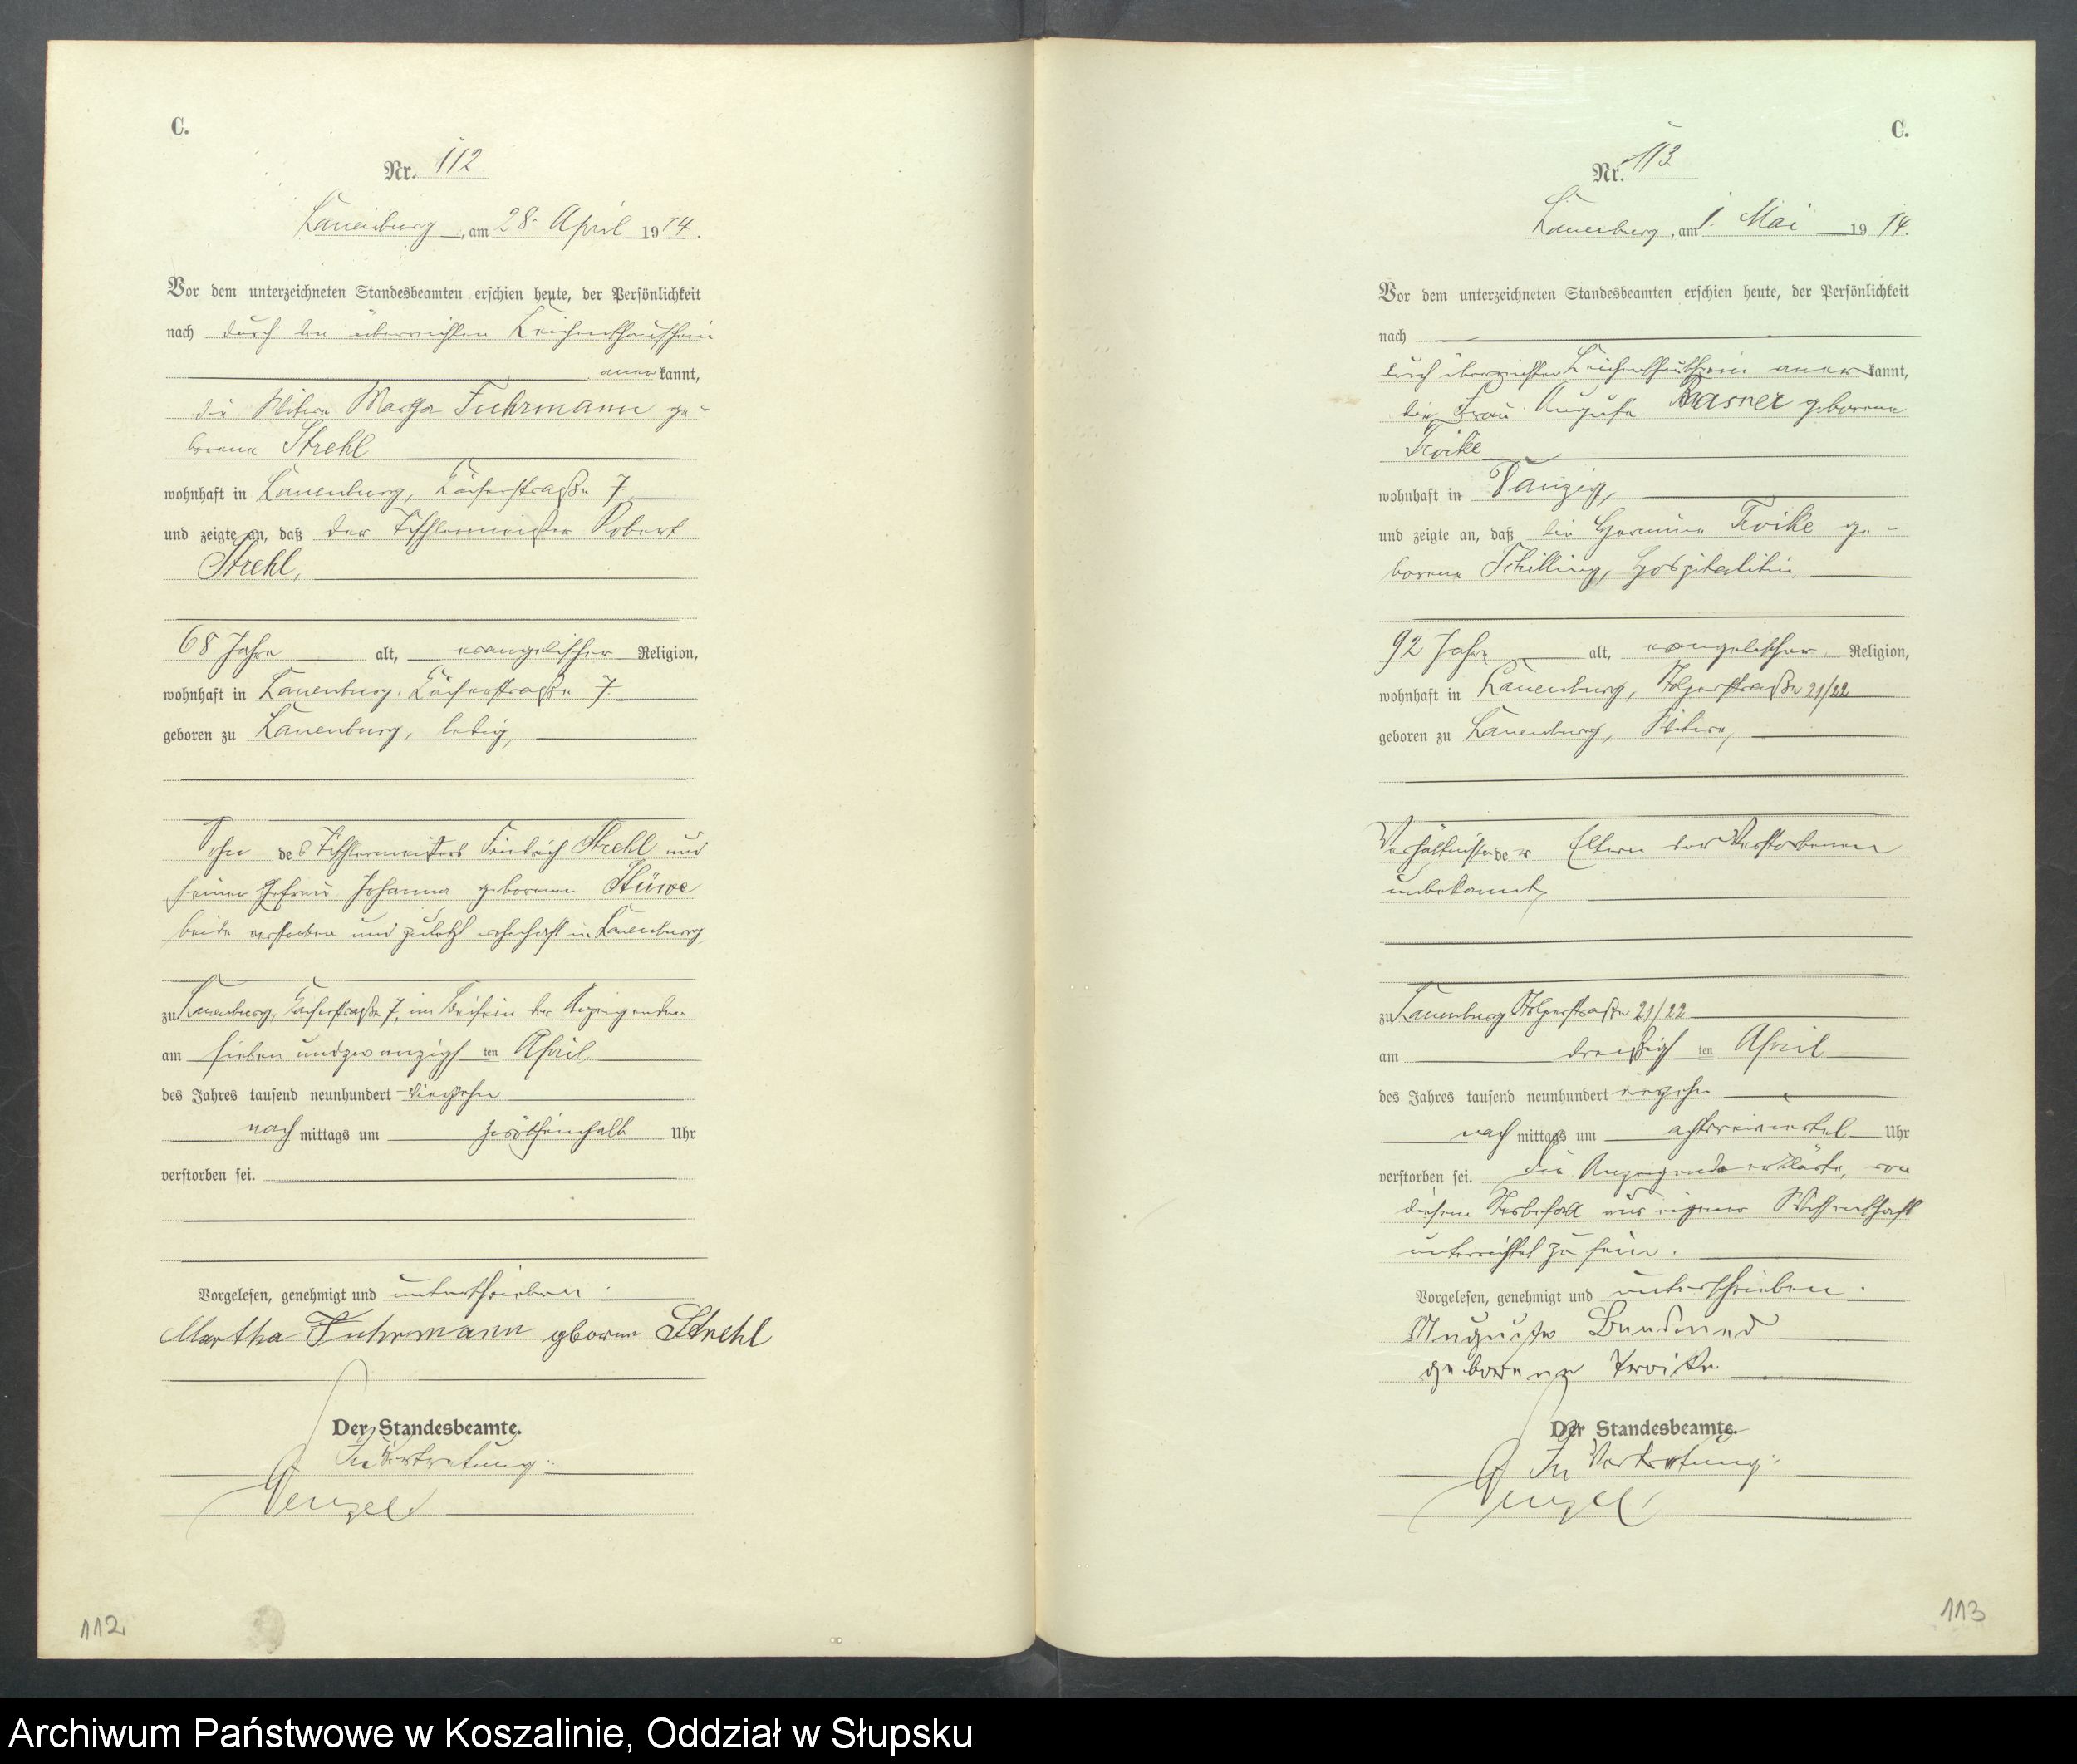 C.
Nr. 112
Lauenburg, am 28. April 1914.
Vor dem unterzeichneten Standesbeamten erschien heute, der Persönlichkeit
nach durch den überreichten Leichenschauschein
anerkannt,
die Witwe Martha Fuhrmann ge-
borene Strehl
wohnhaft in Lauenburg, 7
und zeigte an, daß der Tischlermeister Robert
Strehl,
68 Jahre alt, evangelischer Religion,
wohnhaft in Lauenburg, 7
geboren zu Lauenburg, ledig,
Sohn des Tischlermeisters Friedrich Strehl und
seiner Ehefrau Johanna geborenen Stüwe
beide verstorben und zuletzt wohnhaft in Lauenburg
zu Lauenburg, 7, im Beisein der Anzeigenden
am sieben und zwanzigsten April
des Jahres tausend neunhundert vierzehn
nachmittags um Uhr
verstorben sei.
Vorgelesen, genehmigt und unterschrieben.
Martha Fuhrmann geborne Strehl
Der Standesbeamte.
In Vertretung:
112
C.
Nr. 113
Lauenburg, am 1. Mai 1914.
Vor dem unterzeichneten Standesbeamten erschien heute, der Persönlichkeit
nach
durch überreichten Leichenschauschein anerkannt,
die Frau Auguste geborene
Troike
wohnhaft in Danzig,
und zeigte an, daß die Hermine Troike ge-
borene Schilling, Hospitalitin
92 Jahre alt, evangelischer Religion,
wohnhaft in Lauenburg, Stolperstraße 21/22
geboren zu Lauenburg, Witwe,
Verhältnisse der Eltern der Verstorbenen
unbekannt,
zu Lauenburg Stolperstraße 21/22
am dreißigsten April
des Jahres tausend neunhundert vierzehn
nachmittags um achtdreiviertel Uhr
verstorben sei. Die Anzeigende erklärte, von
diesem Sterbefall aus eigener Wissenschaft
unterrichtet zu sein.
Vorgelesen, genehmigt und unterschrieben.
Auguste
geborene Troike
Der Standesbeamte.
In Vertretung:
113
Archiwum Państwowe w Koszalinie, Oddział w Słupsku